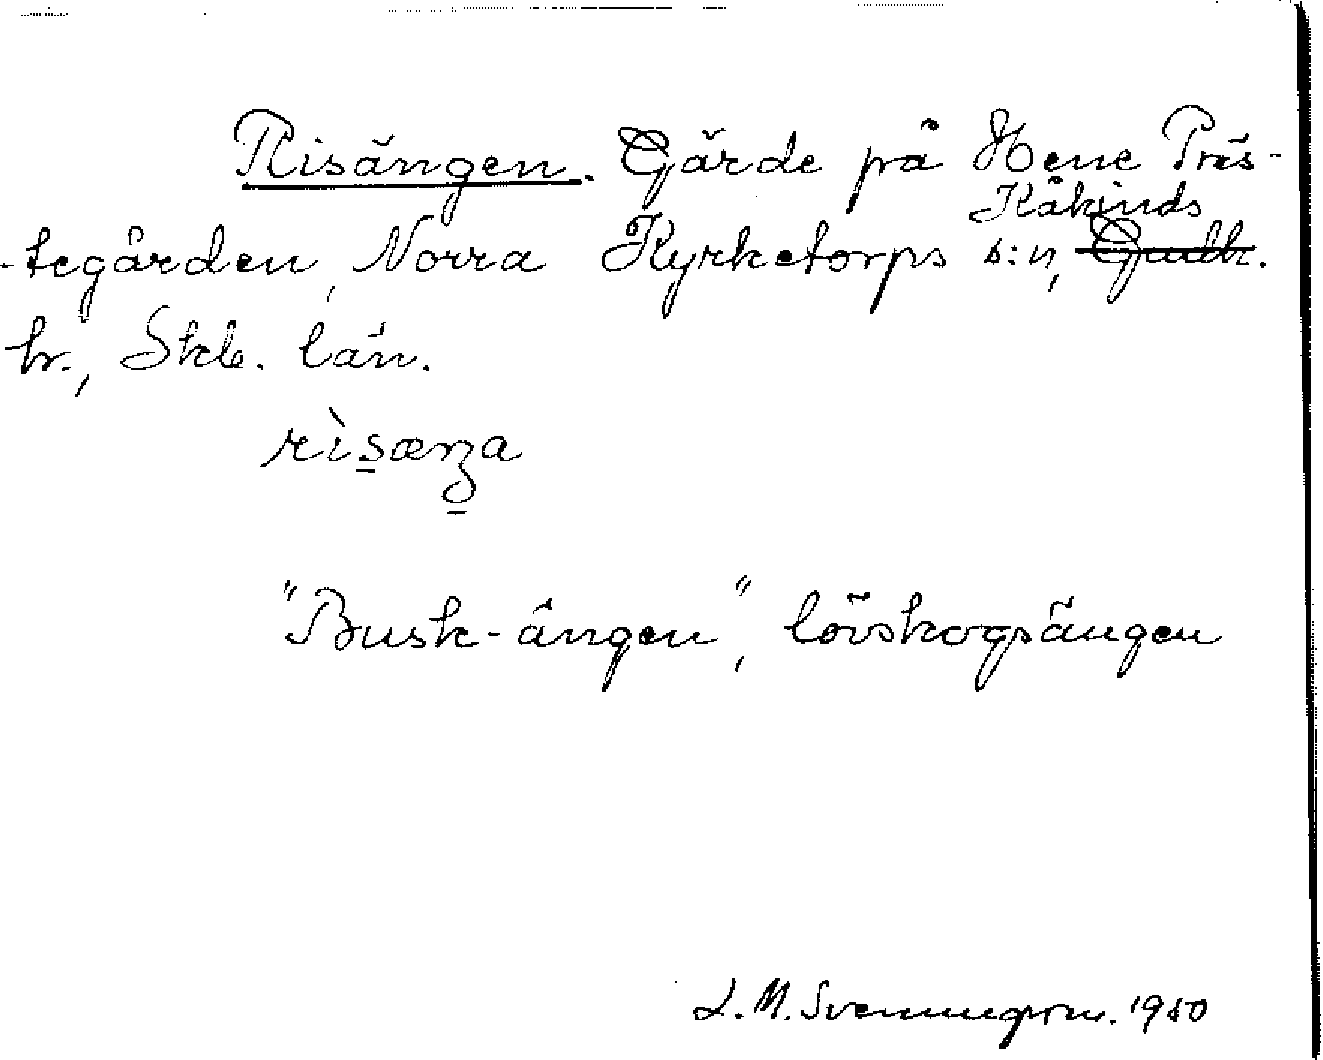 Risängen. Gärde på Hene Präs-
Kåkinds
-tegården, Norra Kyrketorps s:n, Gudh.
hr., Skb. län.
rìsæŋa
"Busk-ängen", lövskogsängen
L. M. Svenungsson. 1950